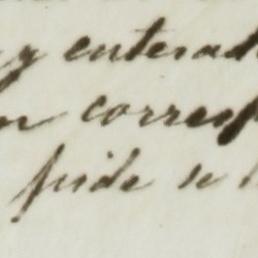 y enterad
corresp
pide se